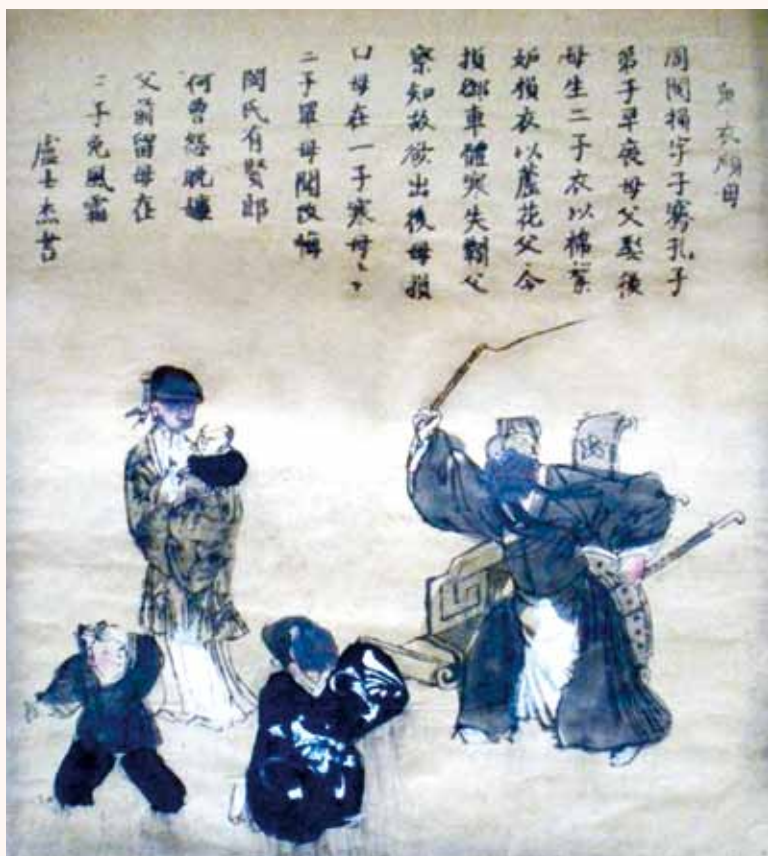 單衣順母
周閔損字子騫孔子
弟子早喪母父娶後
母生二子衣以棉絮
妒損衣以蘆花父令
損御車體寒失靷父
察知故欲出後母損
曰母在一子寒母
二子單母聞改悔
閔氏有賢郎
何曾怨晚孃
父前留母在
二子免風霜
盧士杰書